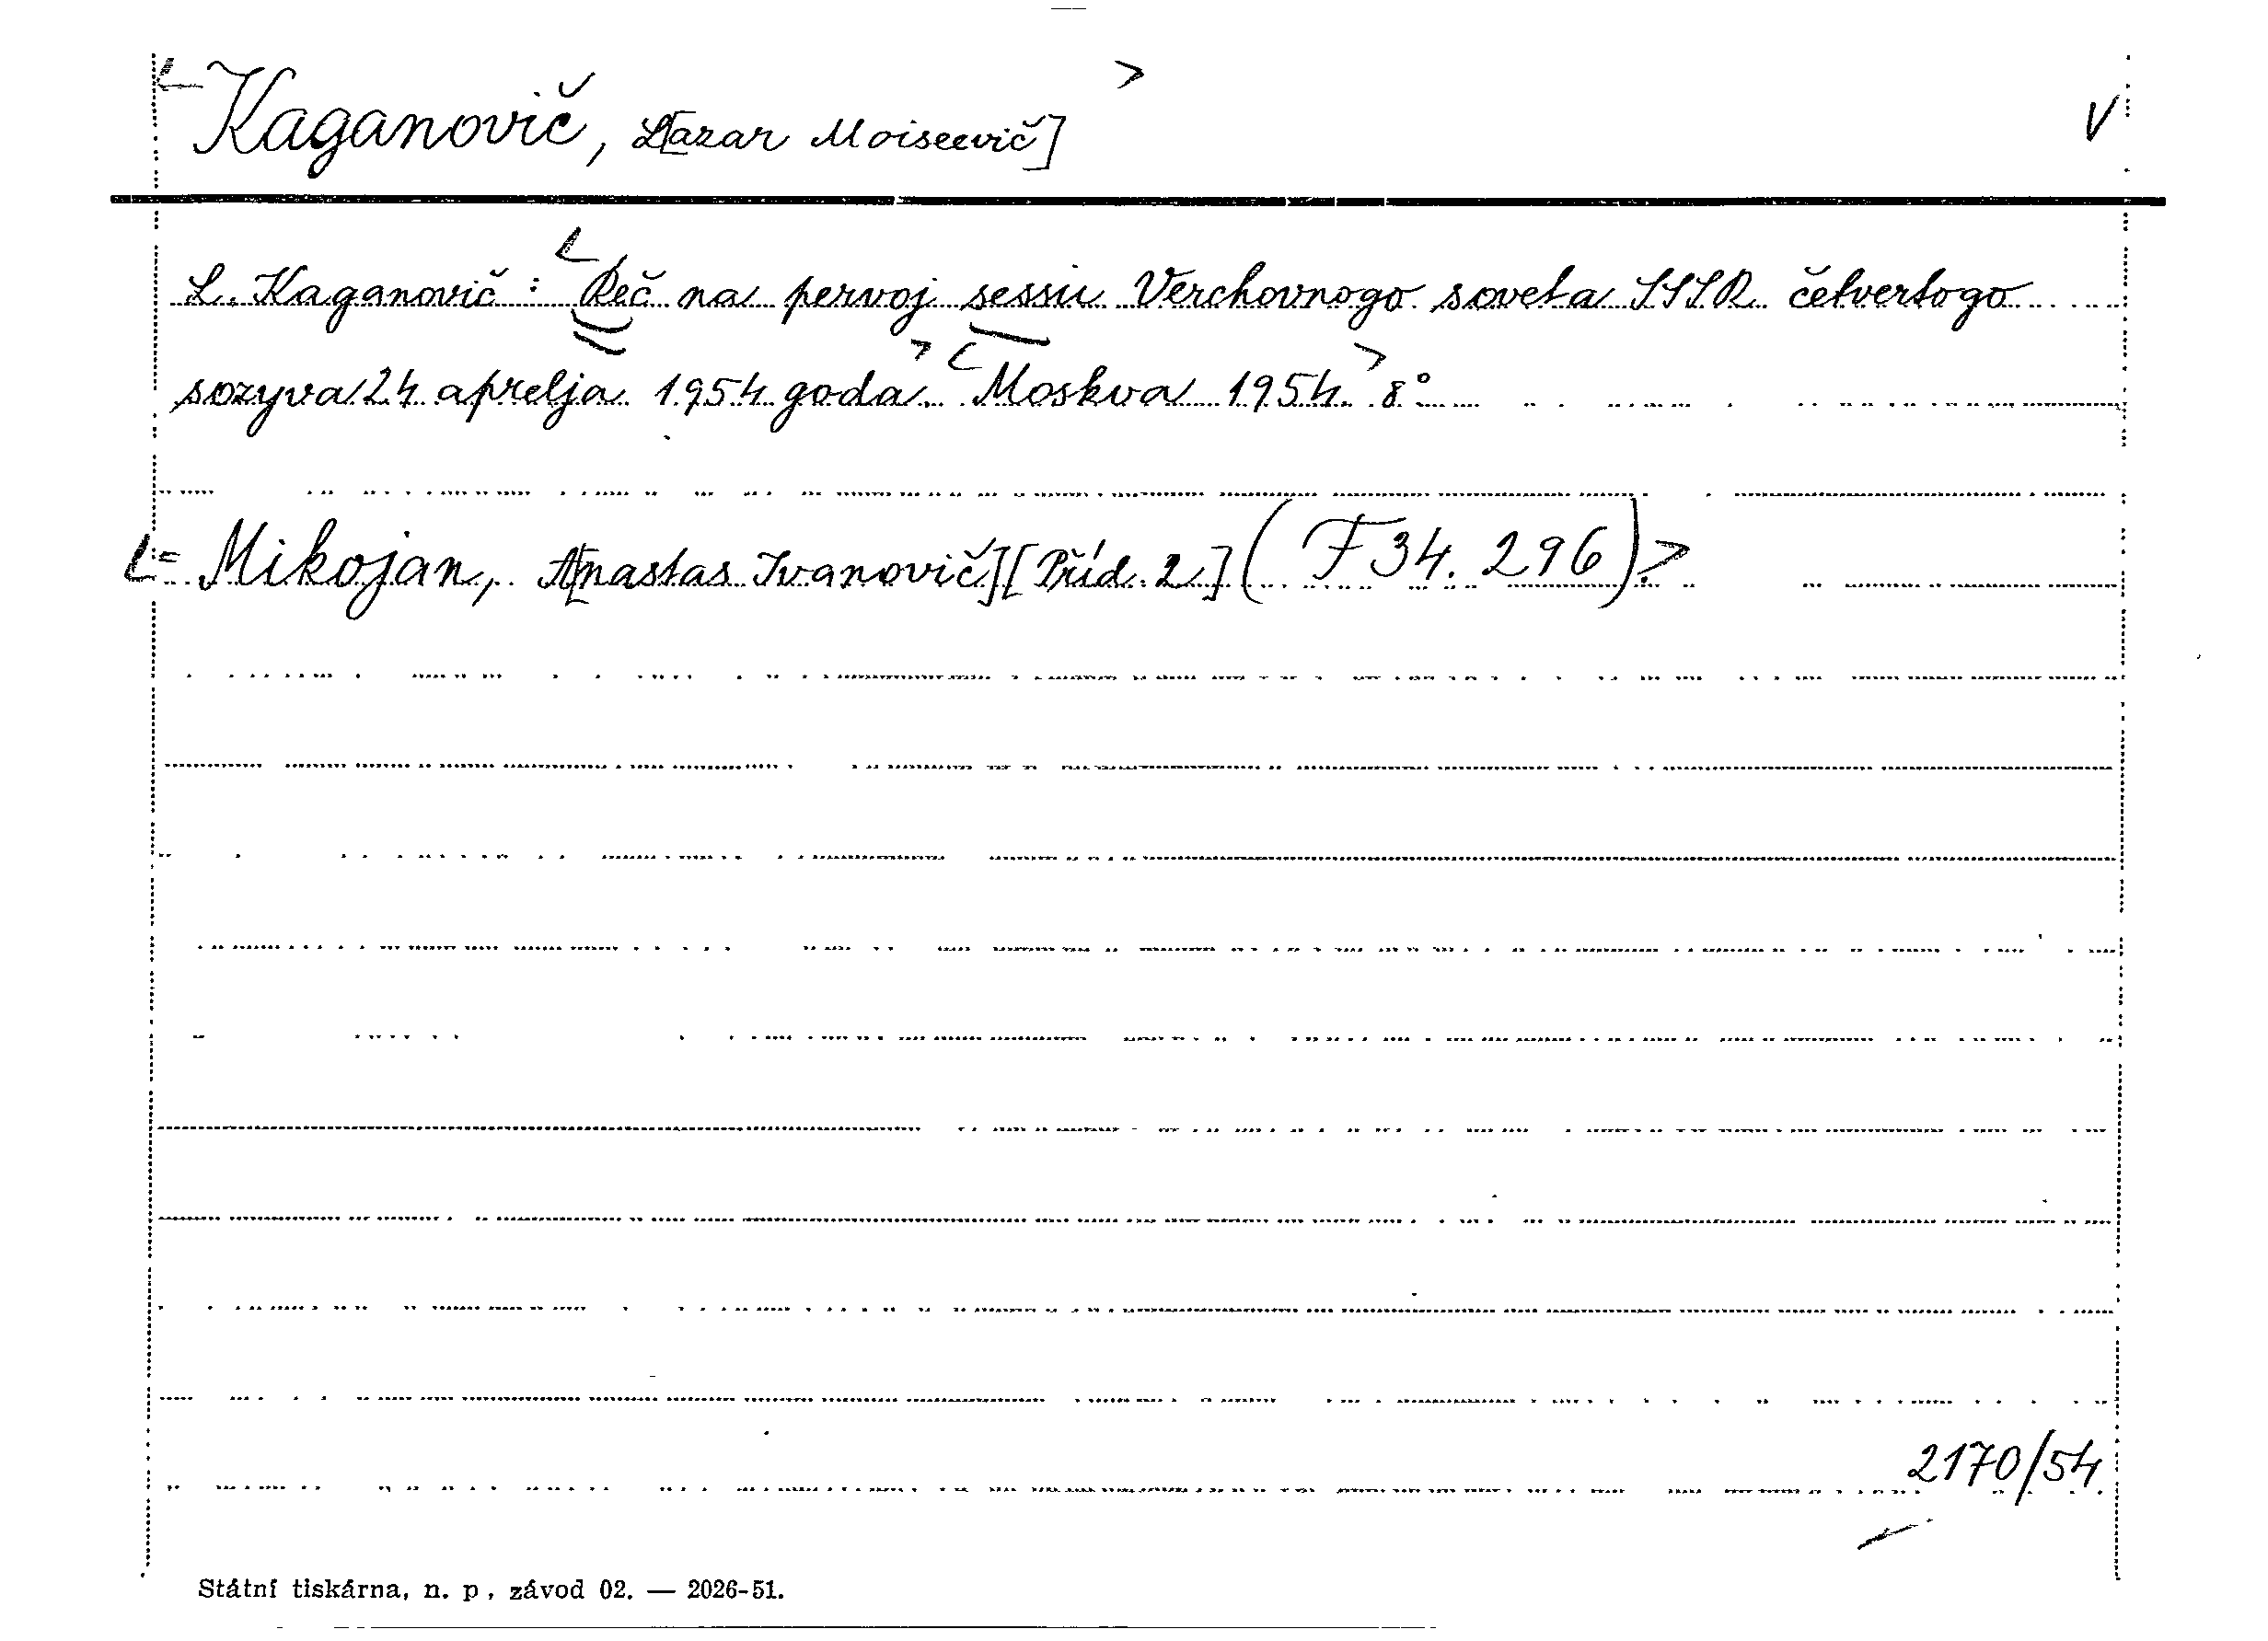 Kaganovič, L[azar Moiseevič] V
L. Kaganovič : Reč na pervoj sessii Verchovnogo soveta SSSR četvertogo
sozyva 24 aprelja 1954 goda. Moskva 1954. 8°
= Mikojan, A[nastas Ivanovič] [Příd. 2] (F 34. 296)
2170/54
Státní tiskárna, n. p., závod 02. — 2026-51.